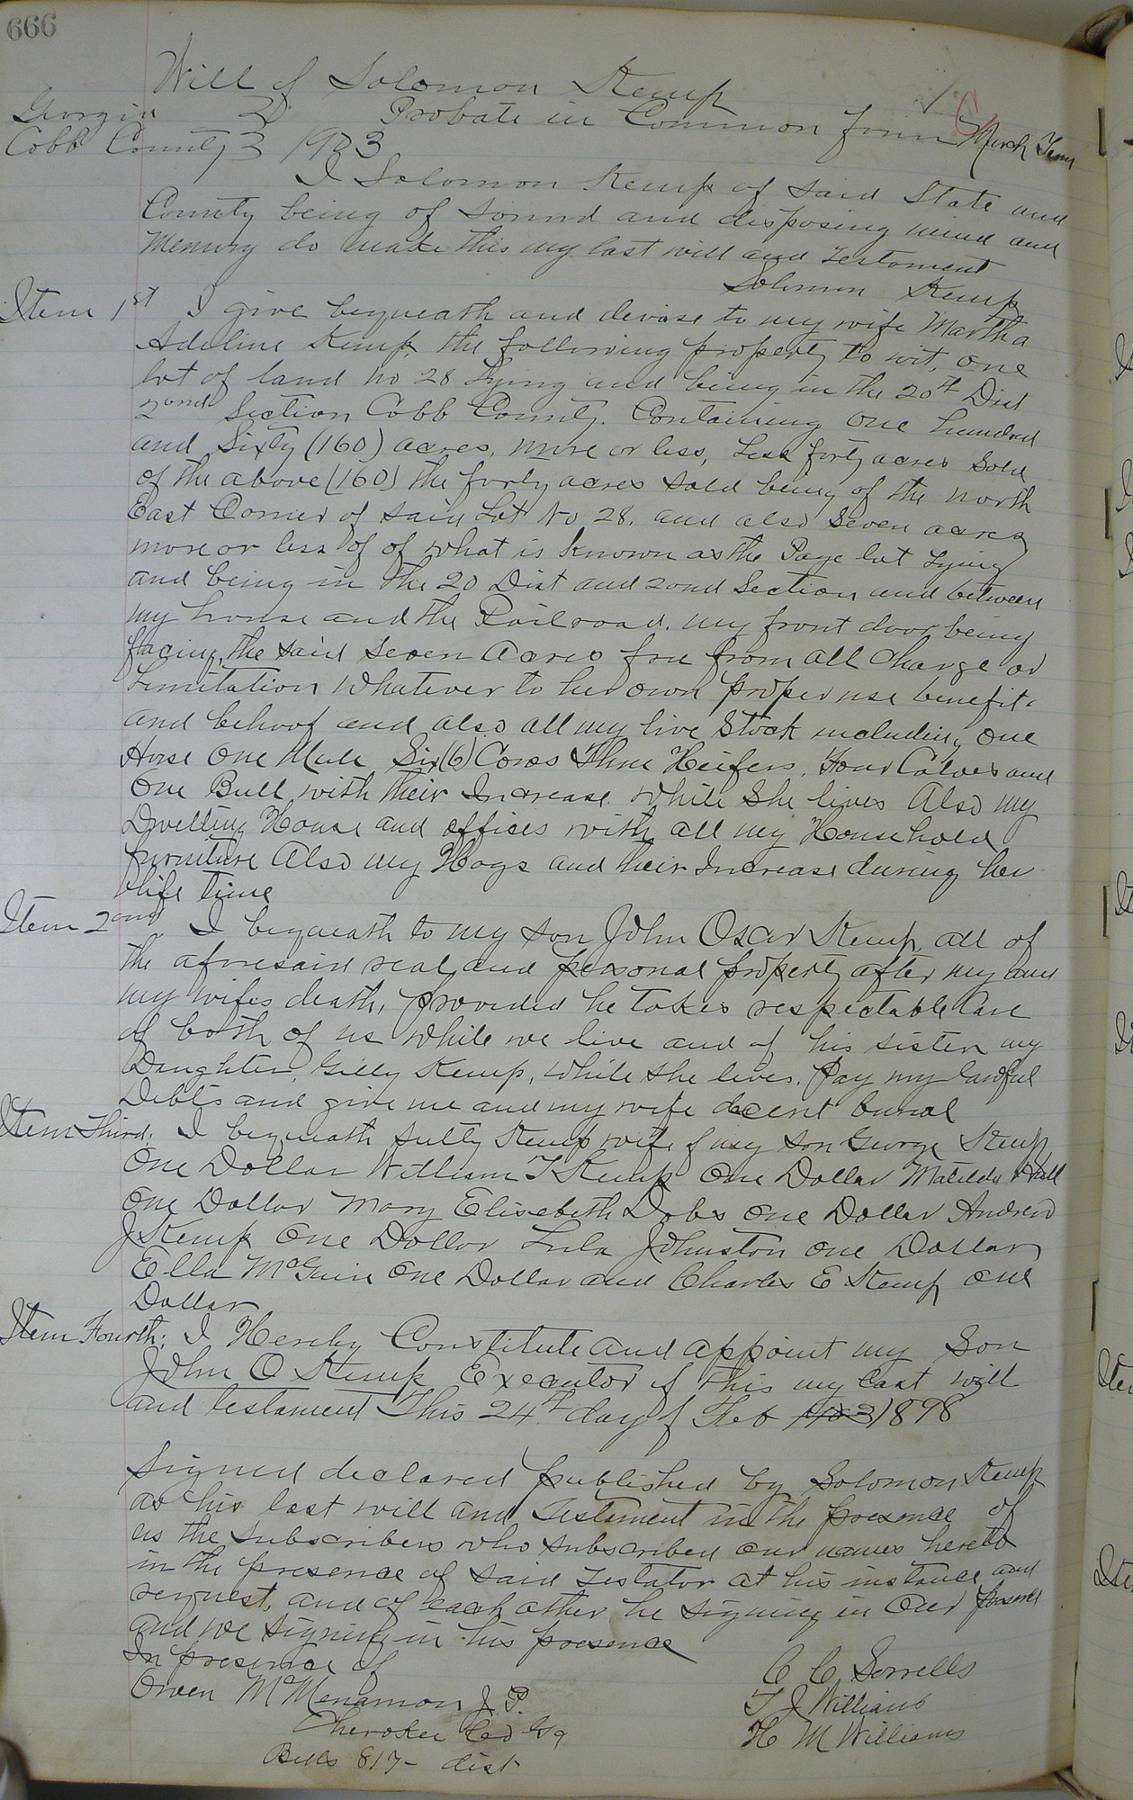 666
Will of Solomon Kemp
Georgia } Probate in Common form March Term
Cobb County } 1903
I Solomon Kemp of said State and
County being of sound and disposing mind and
Memory do make this my last will and testament
Solomon Kemp
Item 1st I give bequeath and devise to my wife Martha
Adeline Kemp the following property to wit, one
lot of land no 28 lying and being in the 20th Dist
2ond Section Cobb County. Containing one hundred
and Sixty (160) acres, more or less, Less forty acres Sold
of the above (160) the forty acres sold being of the north
East Corner of said Lot No 28. and also Seven acres
more or less of of what is known as the Page lot Lying
and being in the 20 Dist and 2ond Section and between
my house and the Railroad. my front door being
facing, the said Seven Acres free from all Charge or
Limitation Whatever to her own proper use benefit
and behoof and also all my live Stock including one
Horse One Mule Six (6) Cows Three Heifers, Four Calves and
One Bull with their Increase while She lives Also my
Dwelling House and offices with all my Household
furniture Also my Hogs and their Increase during her
life time
Item 2ond I bequeath to my son John Oscar Kemp all of
the aforesaid real and personal property after my and
my wifes death, provided he takes respectable Care
of both of us while we live and of his sister my
Daughter, Gilly Kemp, while She lives, Pay my lawful
Debts and give me and my wife decent burial
Item Third. I bequeath Kemp wife of my son George Kemp
One Dollar William T Kemp One Dollar Matilda
One Dollar Mary Elisebeth Dobs One Dollar Andrew
J Kemp One Dollor Lula Johnston one Dollar
Ella McGuire One Dollar and Charles E Kemp one
Dollar
Item Fourth: I Hereby Constitute and appoint my Son
John O Kemp Executor of this my last will
and testament This 24th day of Feb 1903 1898
Signed declared published by Solomon Kemp
as his last will and Testament in the presence of
us the subscribers who subscribed our names hereto
in the presence of said testator at his instance and
request, and of each other he signing in our presence
and we signing in his presence
In presence of
C C Sorrells
Owen McMenamon J. P.
T J Williams
Cherokee Co Ga
H M Williams
Bells 817- dist